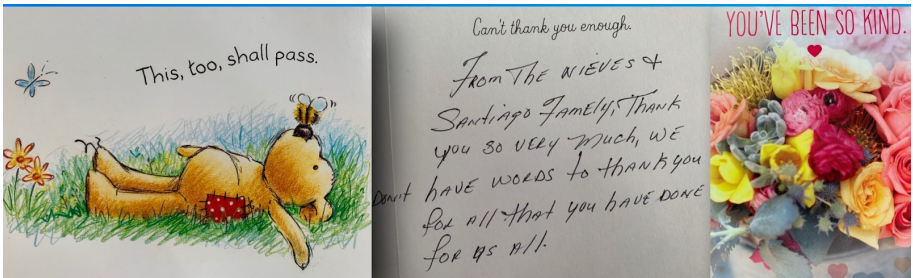 This, too, shall pass.
Can't thank you enough.
From The NIEVES &
Santiago Famely, Thank
you so very much, WE
Don't have words to thank you
for all that you have done
for us all.
YOU'VE BEEN SO KIND.